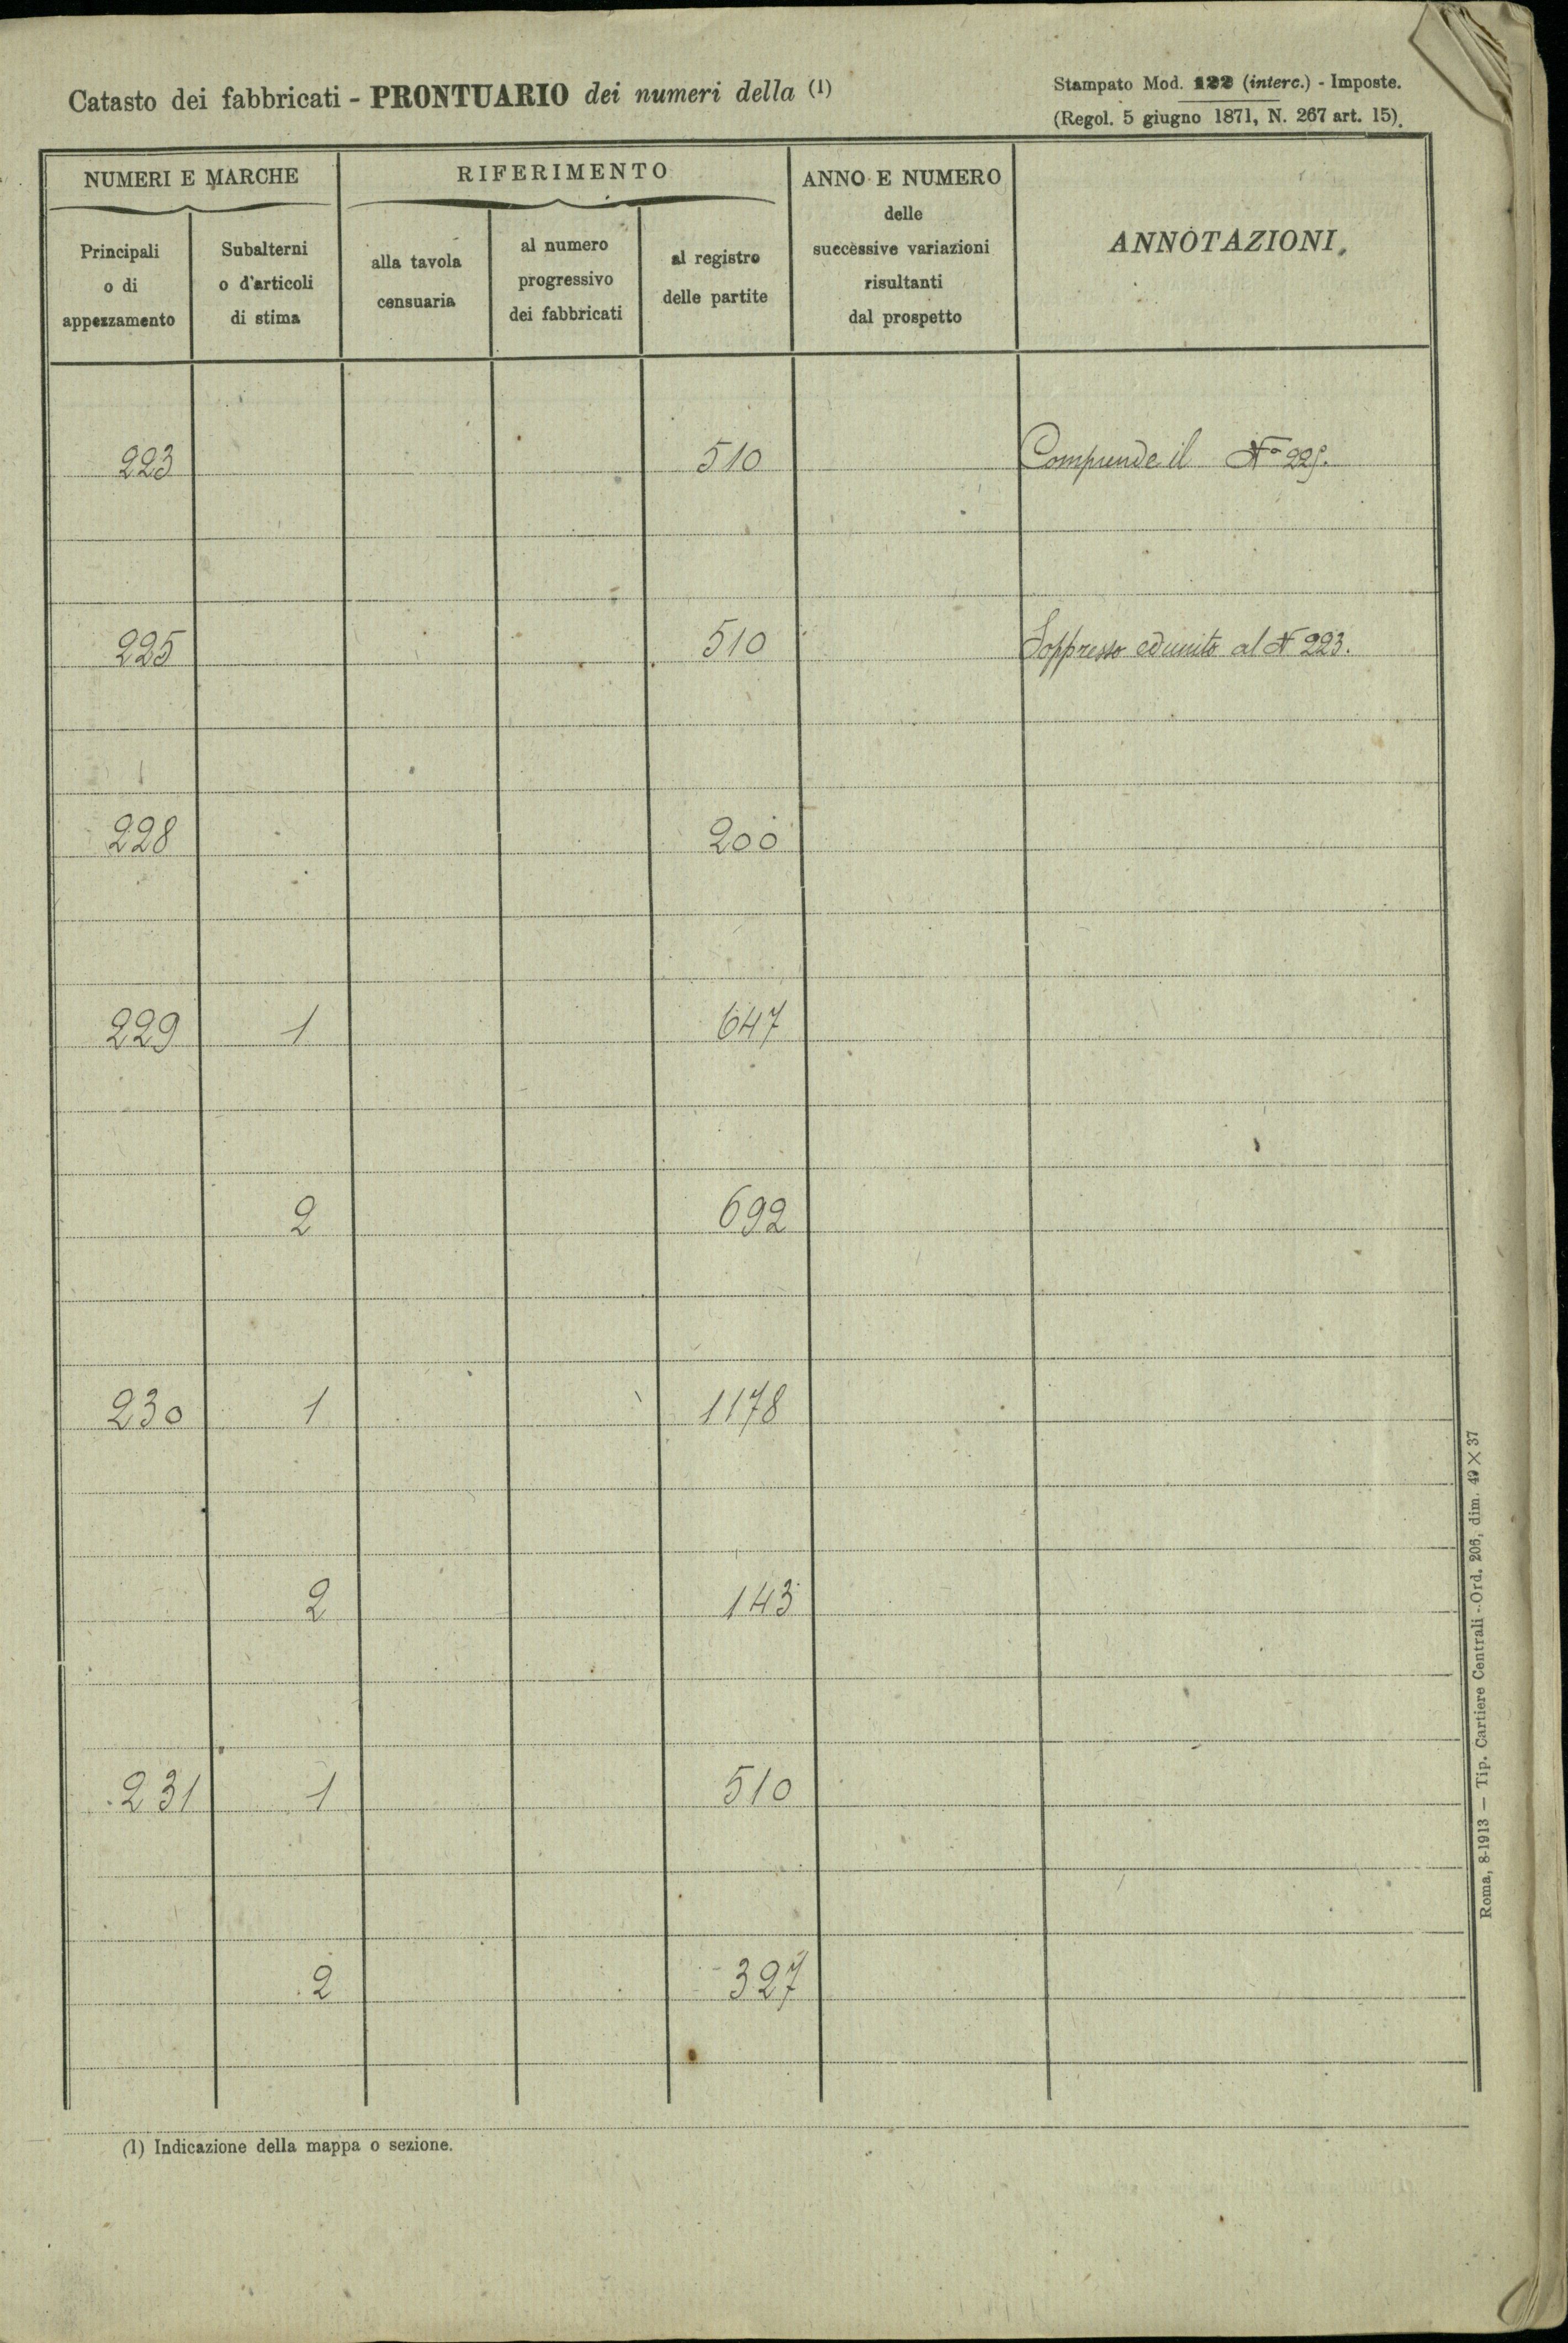 Catasto dei fabbricati - PRONTUARIO dei numeri della (1)
Stampato Mod. 122 (interc.) - Imposte.
(Regol. 5 giugno 1871, N. 267 art. 15).
NUMERI E MARCHE
RIFERIMENTO
ANNO E NUMERO
delle
successive variazioni
risultanti
dal prospetto
ANNOTAZIONI
Principali
o di
appezzamento
Subalterni
o d'articoli
di stima
alla tavola
censuaria
al numero
progressivo
dei fabbricati
al registro
delle partite
223 510 Comprende il N° 225.
225 510 Soppresso ed unito al N 223.
228 200
229 1 647
2 692
230 1 1178
2 143
231 1 510
2 327
(1) Indicazione della mappa o sezione.
Roma, 8-1913 — Tip. Cartiere Centrali - Ord. 206, dim. 49 × 37